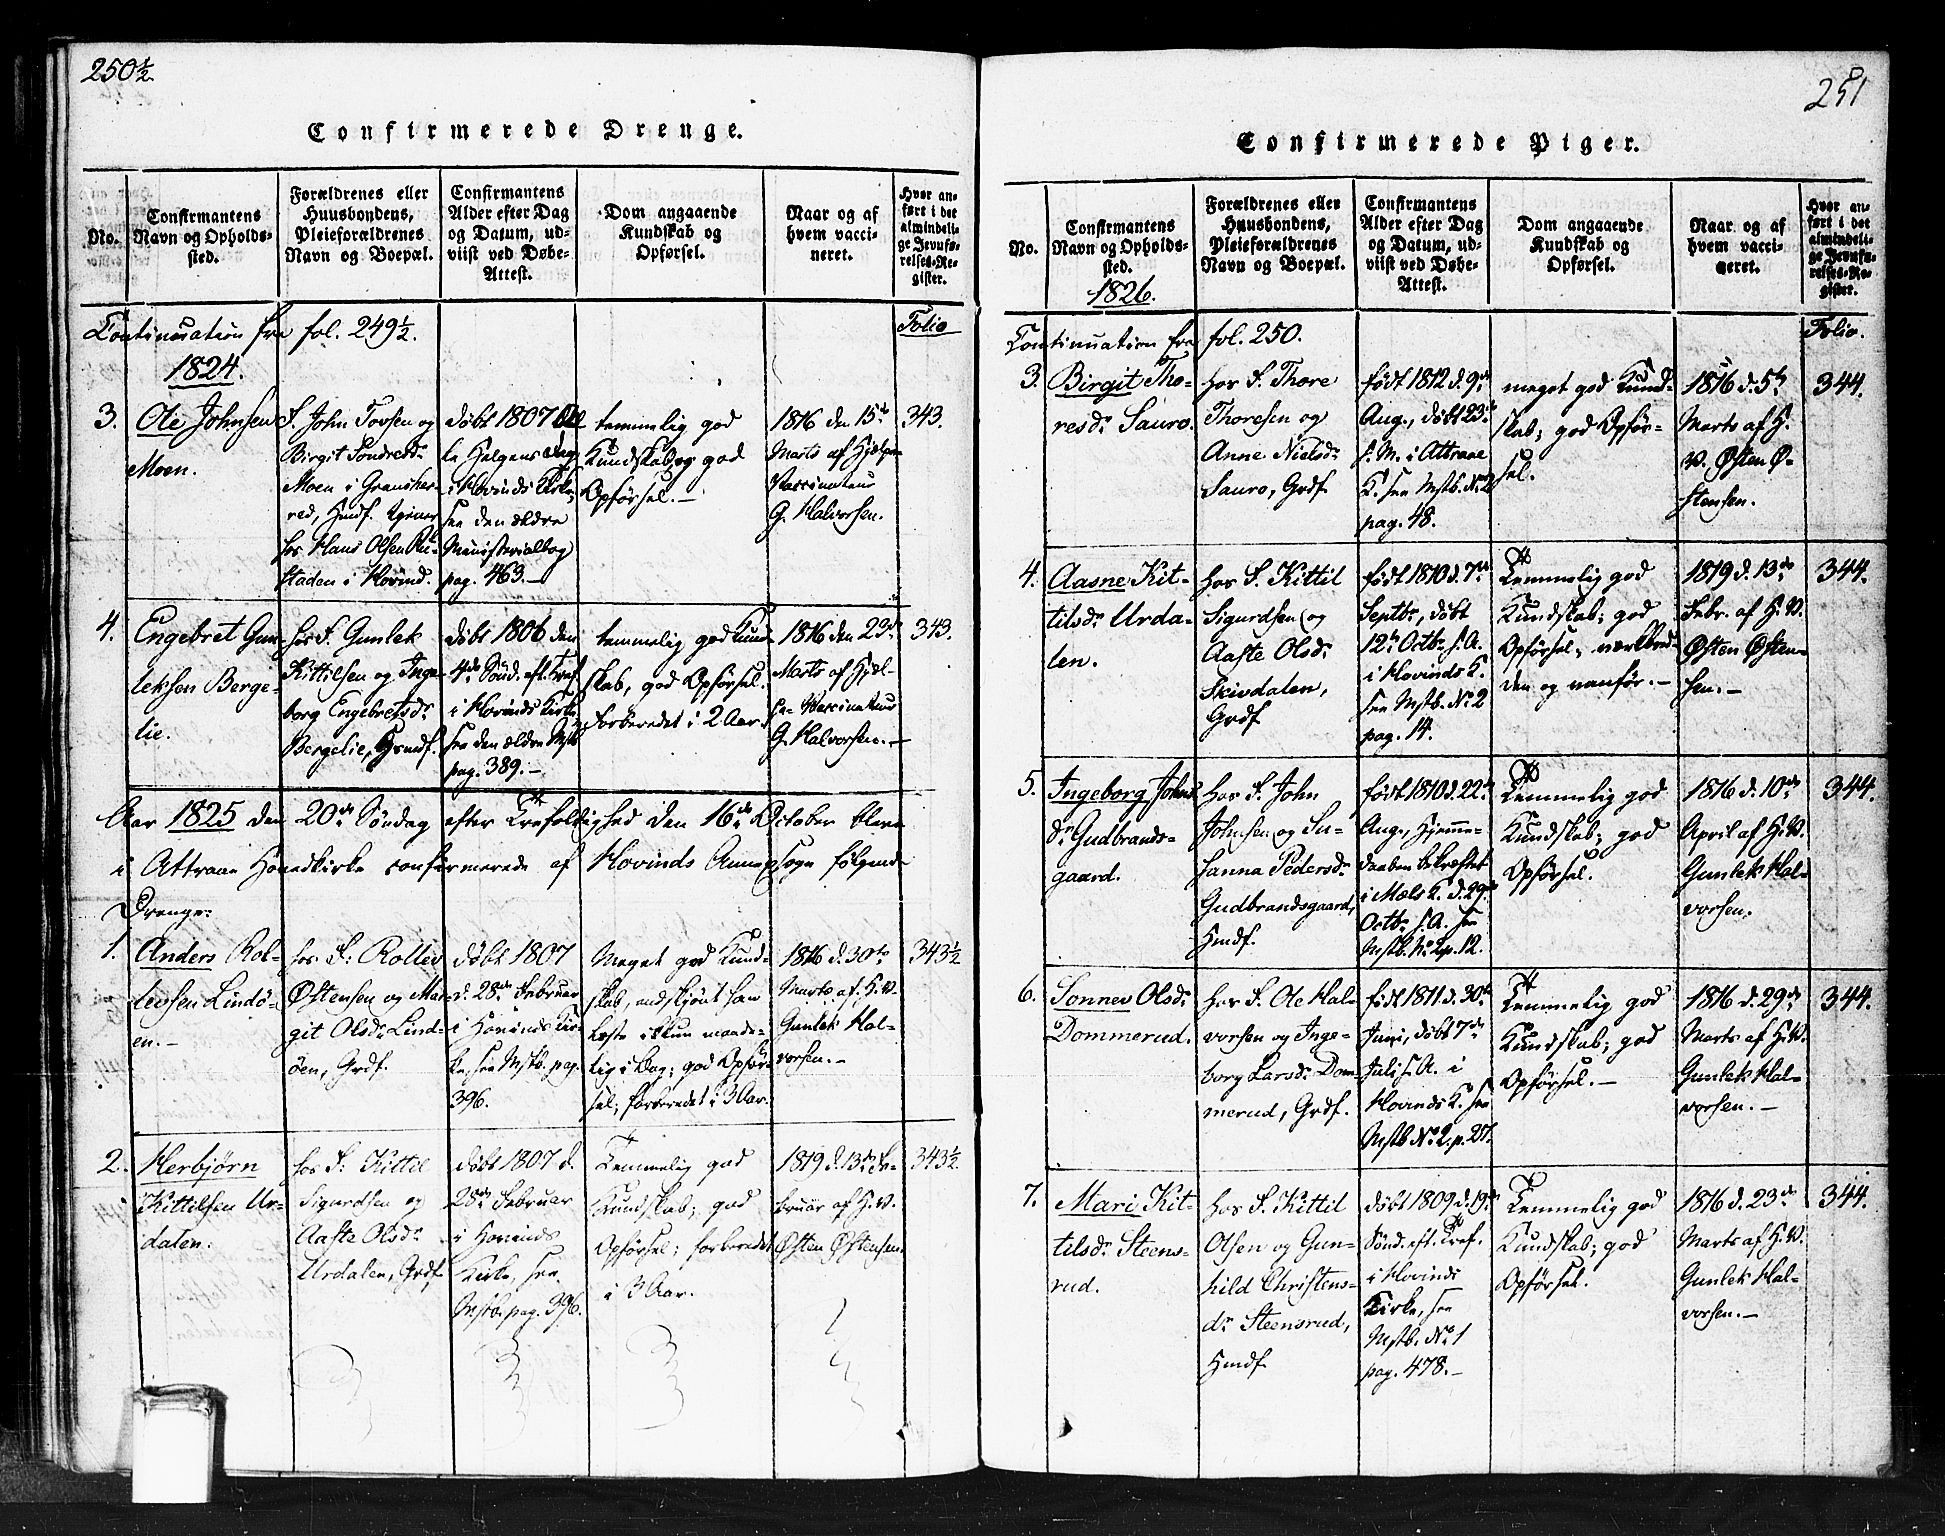 250½
Confirmerede Drenge.
No.
Confirmantens
Navn og Opholds-
sted.
Forældrenes eller
Huusbondens,
Pleieforældrenes
Navn og Boepæl.
Confirmantens
Alder efter Dag
og Datum, ud-
viist ved Døbe-
Attest.
Dom angaaende
Kundskab og
Opførsel.
Naar og af
hvem vacci-
neret.
Hvor an-
ført i det
almindeli-
ge Jevnfø-
relses-Re-
gister.
Continuation fra fol. 249½.
Folio
1824.
3.
Ole Johnsen
Moen.
F. John Tovsen og
Birgit Sondresdr
Moen i Gransher-
red, Hmdf.
hos Hans Olsen Ru-
staden i Hovind.
døbt 1807 Al-
le Helgens Dag
i Hovinds Kirke,
see den ældre
Ministerialbog
pag. 463.-
temmelig god
Kundskab og god
Opførsel.-
1816 den 15de
Marts af Hjelpe-
Vaccinateur
G. Halvorsen.
343.
4.
Engebret Gun-
leksen Berge-
lie.
hos F. Gunlek
Kittilsen og Inge-
borg Engebretsdr
Bergelie, Hmdf.
døbt 1806 den
4de Sønd. eft. Tref.
i Hovinds Kirke,
see den ældre Mstb
pag. 389.-
temmelig god Kund-
skab, god Opførsel.
forberedet i 2 Aar.
1816 den 23de
Marts af Hjel-
pe-Vaccinateur
G. Halvorsen.-
343.
Aar 1825 den 20de Søndag efter Trefoldighed den 16de October bleve
i Attraae Hovedkirke confirmerede af Hovinds Annexsogn følgende
Drenge:
1.
Anders Rol-
levsen Lindø-
en.-
hos F. Rollev
Østensen og Mar-
git Olsdr Lind-
øen, Grdf.
døbt 1807
d. 28de Februar
i Hovinds Kir-
ke, see Mstb. pag.
396.
Meget god Kund-
skab, endskjønt han
læste ikkun maade-
lig i Bog; god Opfør-
sel; forberedet i 3 Aar.
1816 d. 30te
Marts af H.V.
Gunlek Hal-
vorsen.-
343½
2.
Herbjørn
Kittilsen Ur-
dalen.
hos F. Kittil
Sigurdsen og
Aaste Olsdr
Urdalen, Grdf.
døbt 1807 d.
28de Februar
i Hovinds
Kirke, see
Mstb. pag. 396.
Temmelig god
Kundskab; god
Opførsel; forberedet
i 3 Aar.
1819 d. 13de Fe-
bruar af H.V.
Østen Østensen.
343½.
251
Confirmerede Piger.
No.
Confirmantens
Navn og Opholds-
sted.
1826.
Forældrenes eller
Huusbondens,
Pleieforældrenes
Navn og Boepæl.
Confirmantens
Alder efter Dag
og Datum, ud-
viist ved Døbe-
Attest.
Dom angaaende
Kundskab og
Opførsel.
Naar og af
hvem vacci-
neret.
Hvor an-
ført i det
almindeli-
ge Jevnfø-
relses-Re-
gister.
Continuation fra fol. 250.
Folio.
3.
Birgit Tho-
resdr Sauro.
hos F. Thore
Thoresen og
Anne Nielsdr
Sauro, Grdf.
født 1812 d. 9de
Aug., døbt 23de
s. M. i Attraae
K. see Mstb. No 2
pag. 48.
meget god Kund-
skab; god Opfør-
sel.
1816 d. 5te
Marts af H.
V. Østen Ø-
stensen.
344.
4.
Aasne Kit-
tilsdr Urda-
len.
hos F. Kittil
Sigurdsen og
Aaste Olsdr
Skivdalen,
Grdf
født 1810 d. 7de
Septbr, døbt
12te Octbr s. A.
i Hovinds K.
see Mstb. No 2
pag. 14.
Temmelig god
Kundskab; god
Opførsel;
1819 d. 13de
Febr. af H.V.
Østen Østen-
sen.-
344.
5.
Ingeborg Johns-
dr Gudbrands-
gaard.
hos F. John
Johnsen og Su-
sanna Pedersdr
Gudbrandsgaard,
Hmdf.
født 1810 d. 22de
Aug., Hjemme-
daaben bekræftet
i Mæls K. d. 29de
Octbr s. A. see
Mstb. No 2 p. 12.
Temmelig god
Kundskab; god
Opførsel.
1816 d. 10de
April af H.V.
Gunlek Hal-
vorsen.
344.
6.
Sonnev Olsdr
Dommerud.
hos F. Ole Hal-
vorsen og Inge-
borg Larsdr Dom-
merud, Grdf.
født 1811 d. 30te
Juni, døbt 7de
Juli s. A. i
Hovinds K. see
Mstb No 2, p. 27.
Temmelig god
Kundskab; god
Opførsel.-
1816 d. 29de
Marts af H.V.
Gunlek Hal-
vorsen.-
344.
7.
Mari Kit-
tilsdr Steens-
rud.
hos F. Kittil
Olsen og Gun-
hild Christens-
dr Steensrud,
Hmdf
døbt 1809 d. 19de
Sønd. eft. Tref.
i Hovinds
Kirke, see
Mstb. No 1
pag. 478.-
Temmelig god
Kundskab; god
Opførsel.
1816 d. 23de
Marts af H.V.
Gunlek Hal-
vorsen.-
344.